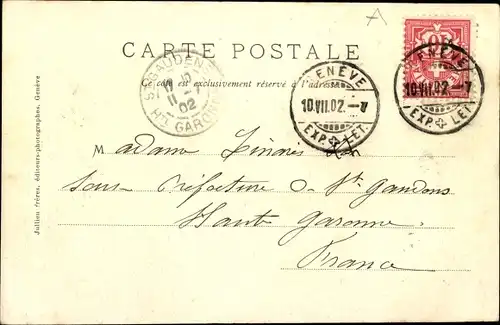 CARTE POSTALE
Ce côté est exclusivement réservé à l'adresse
ST GAUDENS
11
02
HTE GARONNE
GENÈVE
10.VII.02.–7
EXP. LET.
GENÈVE
10.VII.02.–7
EXP. LET.
Madame
Sous Préfecture St Gaudens
Haute Garonne
France
Jullien frères, éditeurs-photographes, Genève